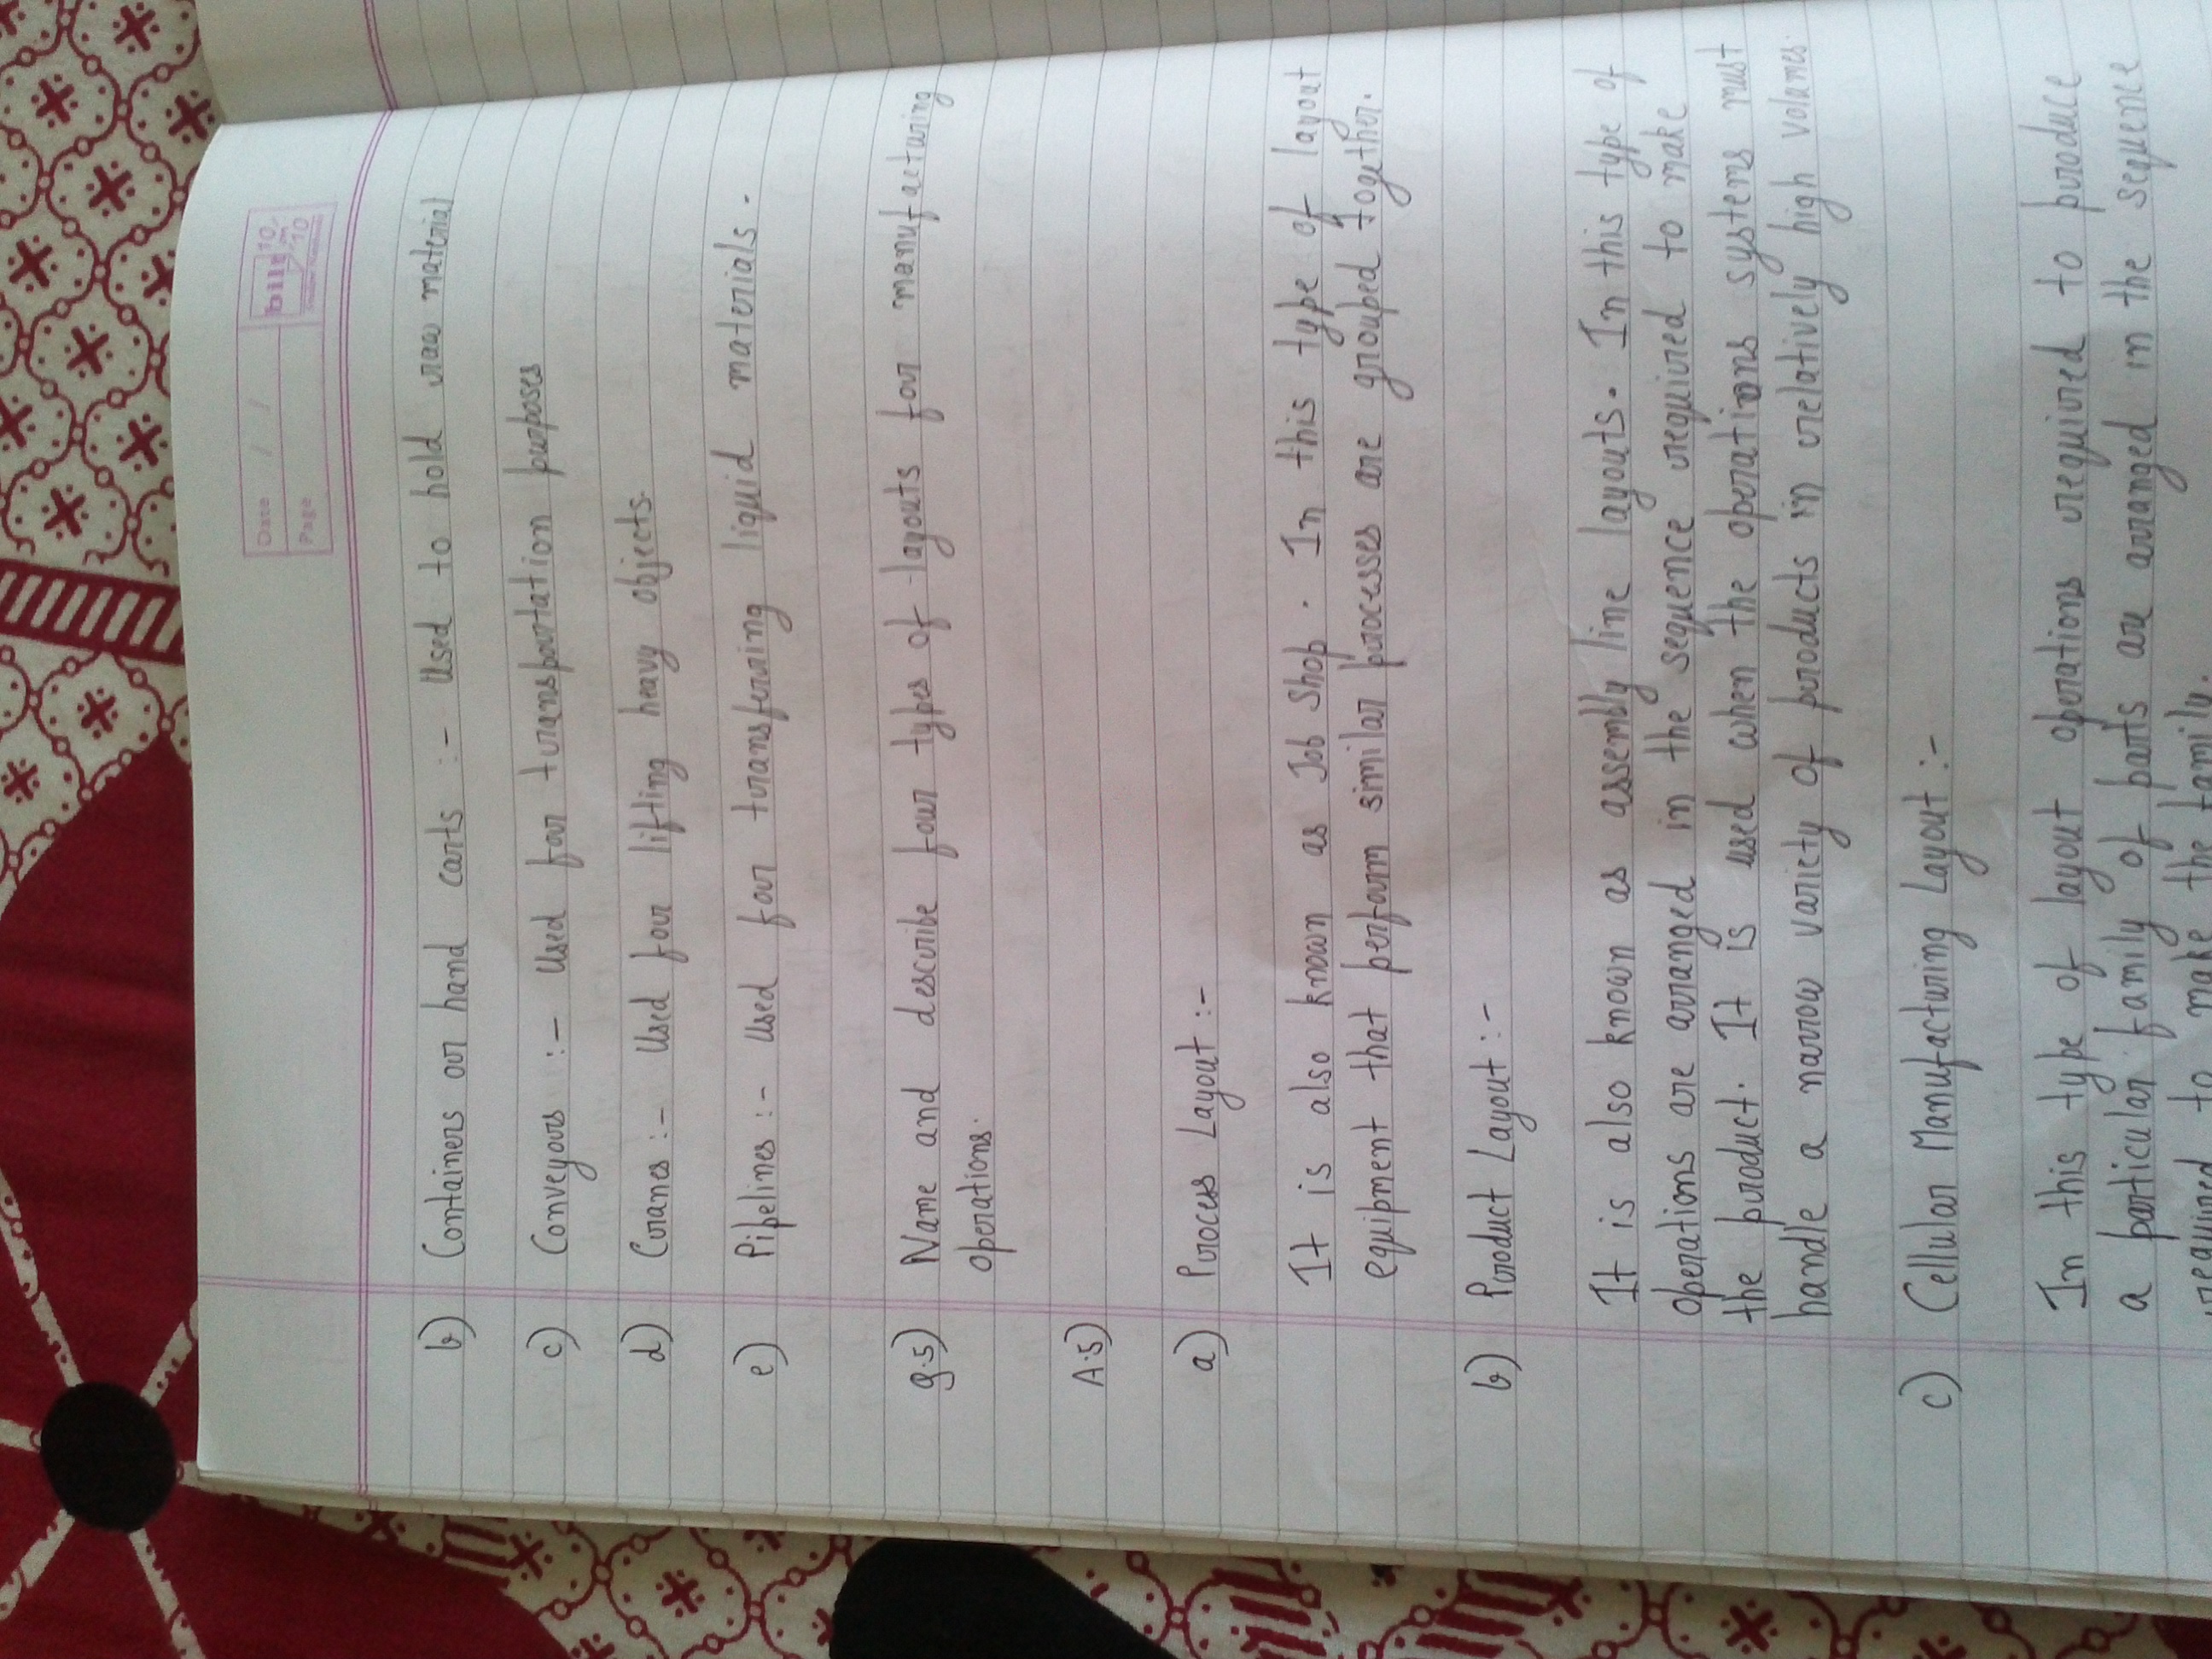 Date / /
Page
bilt 10 on 10
b) Containers or hand carts :- Used to hold raw material
c) Conveyors :- Used for transportation purposes
d) Cranes :- Used for lifting heavy objects.
e) Pipelines :- Used for transferring liquid materials.
Q.5) Name and describe four types of layouts for manufacturing
operations.
A.5)
a) Process Layout :-
It is also known as Job Shop. In this type of layout
equipment that perform similar processes are grouped together.
b) Product Layout :-
It is also known as assembly line layouts. In this type of
operations are arranged in the sequence required to make
the product. It is used when the operations systems must
handle a narrow variety of products in relatively high volumes.
c) Cellular Manufacturing Layout :-
In this type of layout operations required to produce
a particular family of parts are arranged in the sequence
required to make the family.